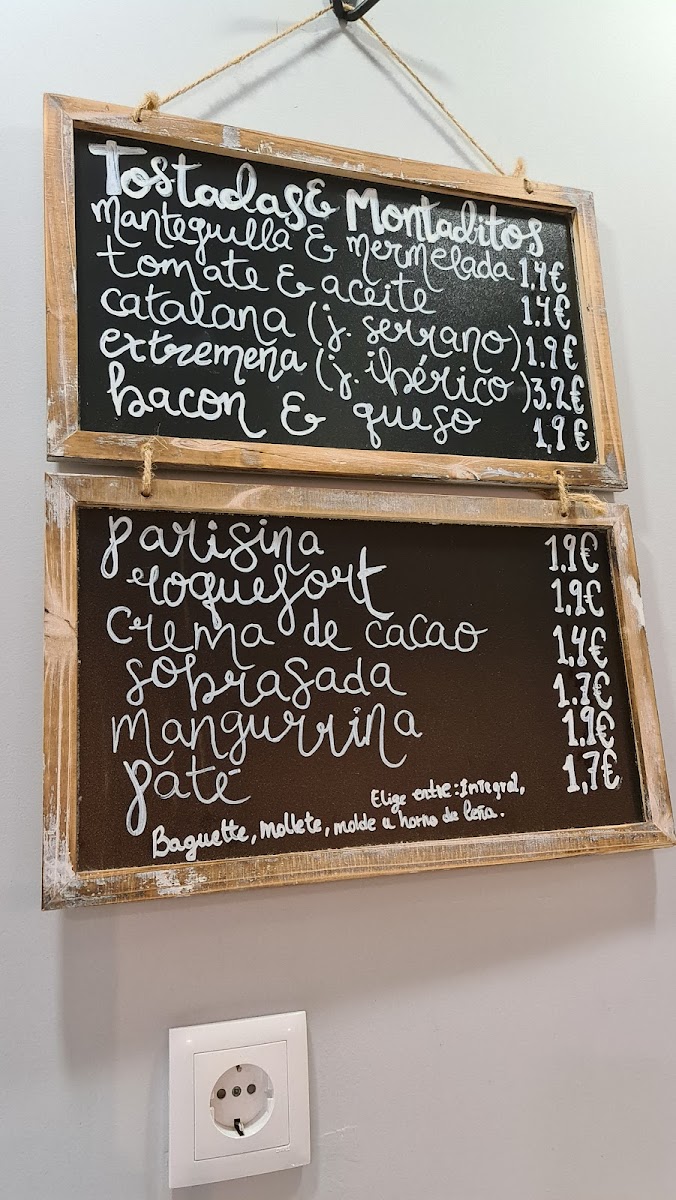 Tostadas & Montaditos
mantequilla & mermelada 1,4€
tomate & aceite 1.4€
catalana (j. serrano) 1.9€
extremeña (j. ibérico) 3.2€
bacon & queso 1,9€
parisina 1.9€
roquefort 1,9€
crema de cacao 1,4€
sobrasada 1.7€
mangurrina 1.9€
paté 1,7€
Elige entre: Integral,
Baguette, Mollete, molde u horno de leña.